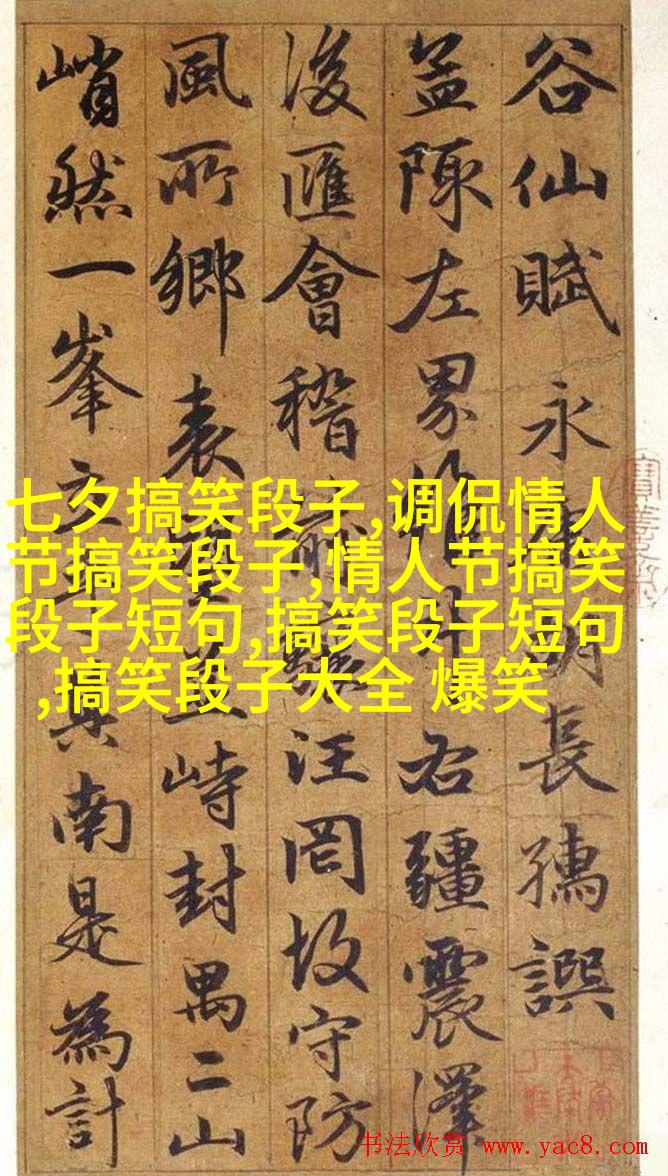 谷仙賦 永長孺譔
左界右疆震澤
後匯會稽汪罔故守防
風所鄉表峙封禺二山
峭然一峯立其南是為計
七夕搞笑段子,调侃情人
节搞笑段子,情人节搞笑
段子短句,搞笑段子短句
,搞笑段子大全 爆笑
书法欣赏 www.yac8.com